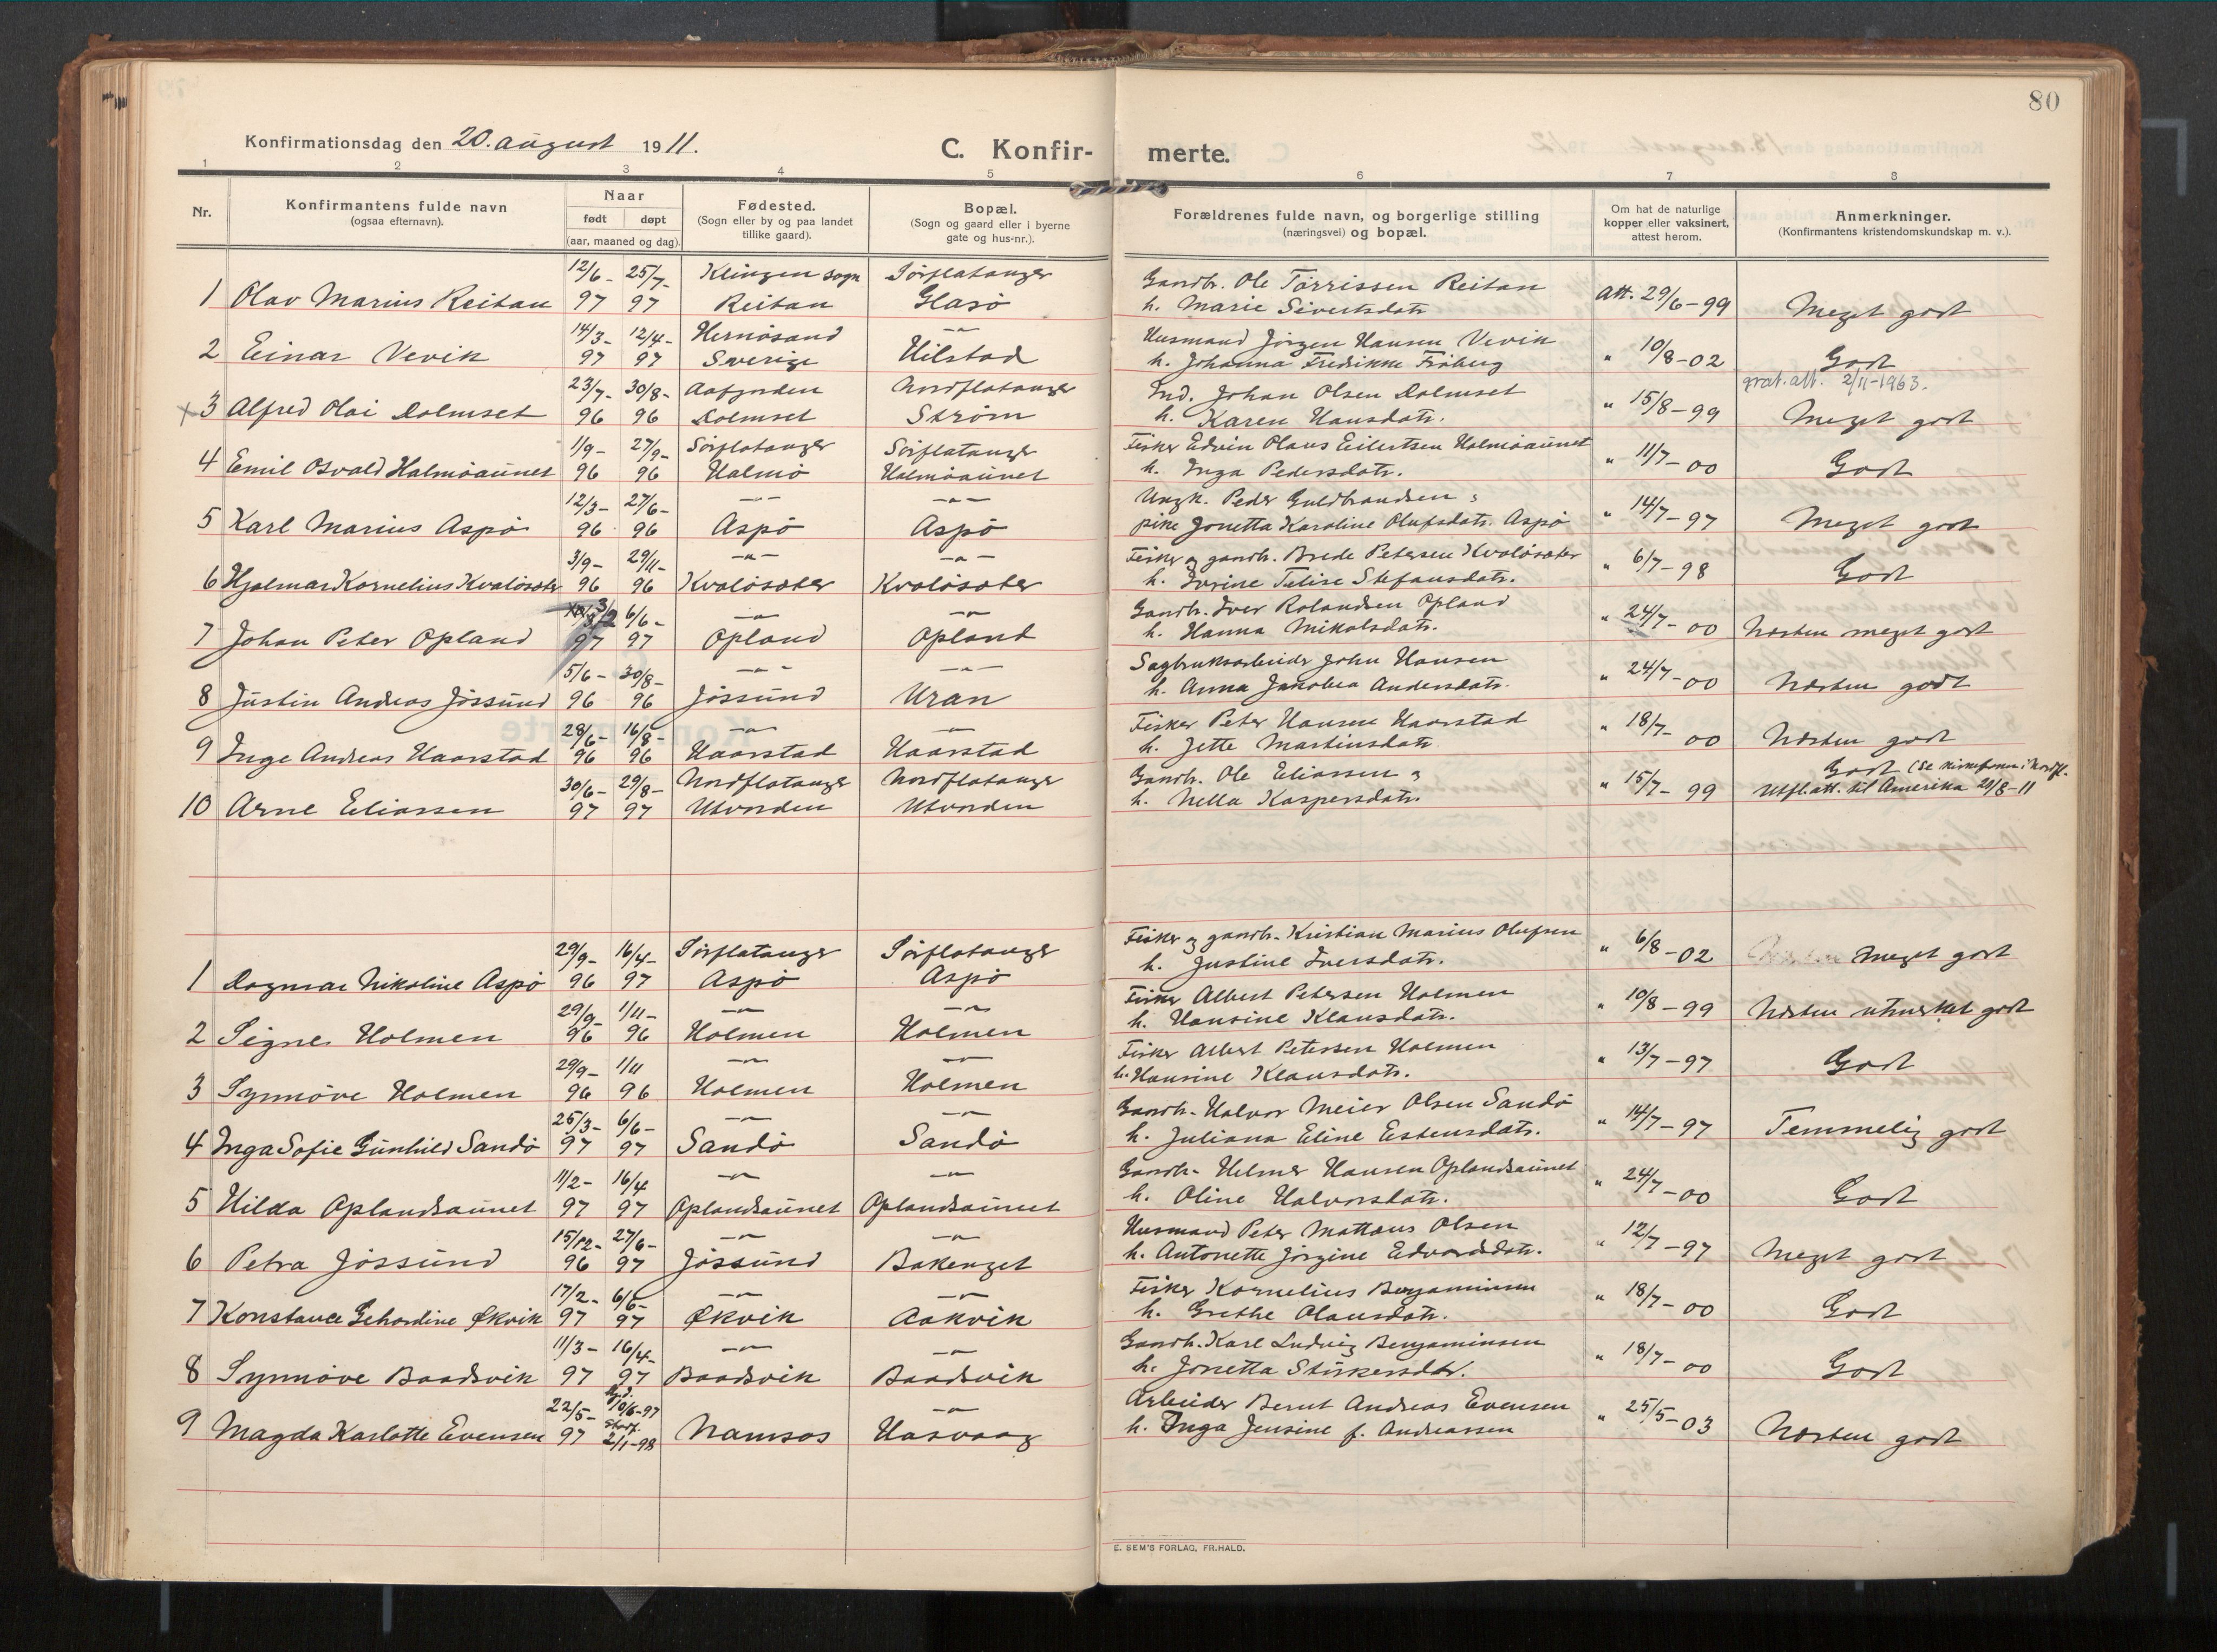 80
Konfirmationsdag den 20. august 1911.
C. Konfir- merte.
1 2 3 4 5 6 7 8
Nr.
Konfirmantens fulde navn
(ogsaa efternavn).
Naar
født døpt
(aar, maaned og dag).
Fødested.
(Sogn eller by og paa landet
tillike gaard).
Bopæl.
(Sogn og gaard eller i byerne
gate og hus-nr.).
Forældrenes fulde navn, og borgerlige stilling
(næringsvei) og bopæl.
Om hat de naturlige
kopper eller vaksinert,
attest herom.
Anmerkninger.
(Konfirmantens kristendomskundskap m. v.).
12/6- 25/7- Klingen sogn Sörflatanger Gaardbr. Ole Törrissen Reitan
1 Olav Marius Reitan 97 97 Reitan Glasö h. Marie Sivertsdatr. Att. 29/6-99 Meget godt
14/3- 12/4- Hernösand -"- Husmand Jörgen Hansen Vevik
2 Einar Vevik 97 97 Sverige Hilstad h. Johanna Fredrikke Fröberg " 10/8-02 Godt
grat. att. 2/11-1963.
23/7- 30/8- Aafjorden Nordflatanger Ind. Johan Olsen Dolmset
x 3 Alfred Olai Dolmset 96 96 Dolmset Ström h. Karen Hansdatr. " 15/8-99 Meget godt
1/9- 27/9- Sörflatanger Sörflatanger Fisker Edvin Olaus Eilertsen Halmöaunet
4 Emil Osvald Halmöaunet 96 96 Halmö Halmöaunet h. Inga Pedersdatr. " 11/7-00 Godt
12/3- 27/6- -"- -"- Ungk. Peder Guldbrandsen og
5 Karl Marius Aspö 96 96 Aspö Aspö pike Jonetta Karoline Olufsdatr. Aspö " 14/7-97 Meget godt
3/9- 29/11- -"- -"- Fisker og gaardbr. Brede Petersen Kvalösæter
6 Hjalmar Kornelius Kvalösæter 96 96 Kvalösæter Kvalösæter h. Ivrine Felise Stefansdatr. " 6/7-98 Godt
3/2 6/6- -"- -"- Gaardbr. Iver Rolandsen Opland
7 Johan Peter Opland 97 97 Opland Opland h. Hanna Nikolsdatr. " 24/7-00 Næsten meget godt
5/6- 30/8- -"- -"- Sagbruksarbeider John Hansen
8 Justin Andreas Jössund 96 96 Jössund Uran h. Anna Jakobea Andersdatr. " 24/7-00 Næsten godt
28/6- 16/8- -"- -"- Fisker Peter Hansen Haarstad
9 Inge Andreas Haarstad 96 96 Haarstad Haarstad h. Jette Martinsdatr " 18/7-00 Næsten godt
30/6- 29/8- Nordflatanger Nordflatanger Gaardbr. Ole Eliassen og Godt (Se ministerialboken i Nordfl.
10 Arne Eliassen 97 97 Utvorden Utvorden h. Nella Kaspersdatr. " 15/7-99 Utfl. att. til Amerika 20/8-11
29/9- 16/4- Sörflatanger Sörflatanger Fisker og gaardbr. Kristian Marius Olufsen
1 Dagmar Nikoline Aspö 96 97 Aspö Aspö h. Justine Iversdatr. " 6/8-02 Meget godt
29/9- 1/11- -"- -"- Fisker Albert Petersen Holmen
2 Signe Holmen 96 96 Holmen Holmen h. Hansine Klausdatr. " 10/8-99 Næsten utmerket godt
29/9- 1/11 -"- -"- Fisker Albert Petersen Holmen
3 Synnöve Holmen 96 96 Holmen Holmen h. Hansine Klausdatr. " 13/7-97 Godt
25/3- 6/6- -"- -"- Gaardbr. Halvor Meier Olsen Sandö
4 Inga Sofie Gunhild Sandö 97 97 Sandö Sandö h. Juliana Eline Estensdatr. " 14/7-97 Temmelig godt
11/2- 16/4 -"- -"- Gaardbr. Helmer Hansen Oplandsaunet
5 Hilda Oplandsaunet 97 97 Oplandsaunet Oplandsaunet h. Oline Halvorsdatr. " 24/7-00 Godt
15/12- 27/6- -"- -"- Husmand Peter Mattæus Olsen
6 Petra Jössund 96 97 Jössund Bakenget h. Antonette Jörgine Edvardsdatr. " 12/7-97 Meget godt
17/2- 6/6- -"- -"- Fisker Kornelius Benjaminsen
7 Konstance Gehardine Økvik 97 97 Økvik Aakvik h. Grethe Olausdatr. " 18/7-00 Godt
11/3- 16/4- -"- -"- Gaardbr. Karl Ludvig Benjaminsen
8 Synnöve Baadsvik 97 97 Baadsvik Baadsvik h. Jonetta Stirkersdatr. " 18/7-00 Godt
22/5- hj.d. 10/6-97 -"- Arbeider Bernt Andreas Evensen
9 Magda Karlotte Evensen 97 stadf. 2/1-98 Namsos Hasvaag h. Inga Jensine f. Andreassen " 25/5-03 Næsten godt
E. SEM'S FORLAG, FR.HALD.